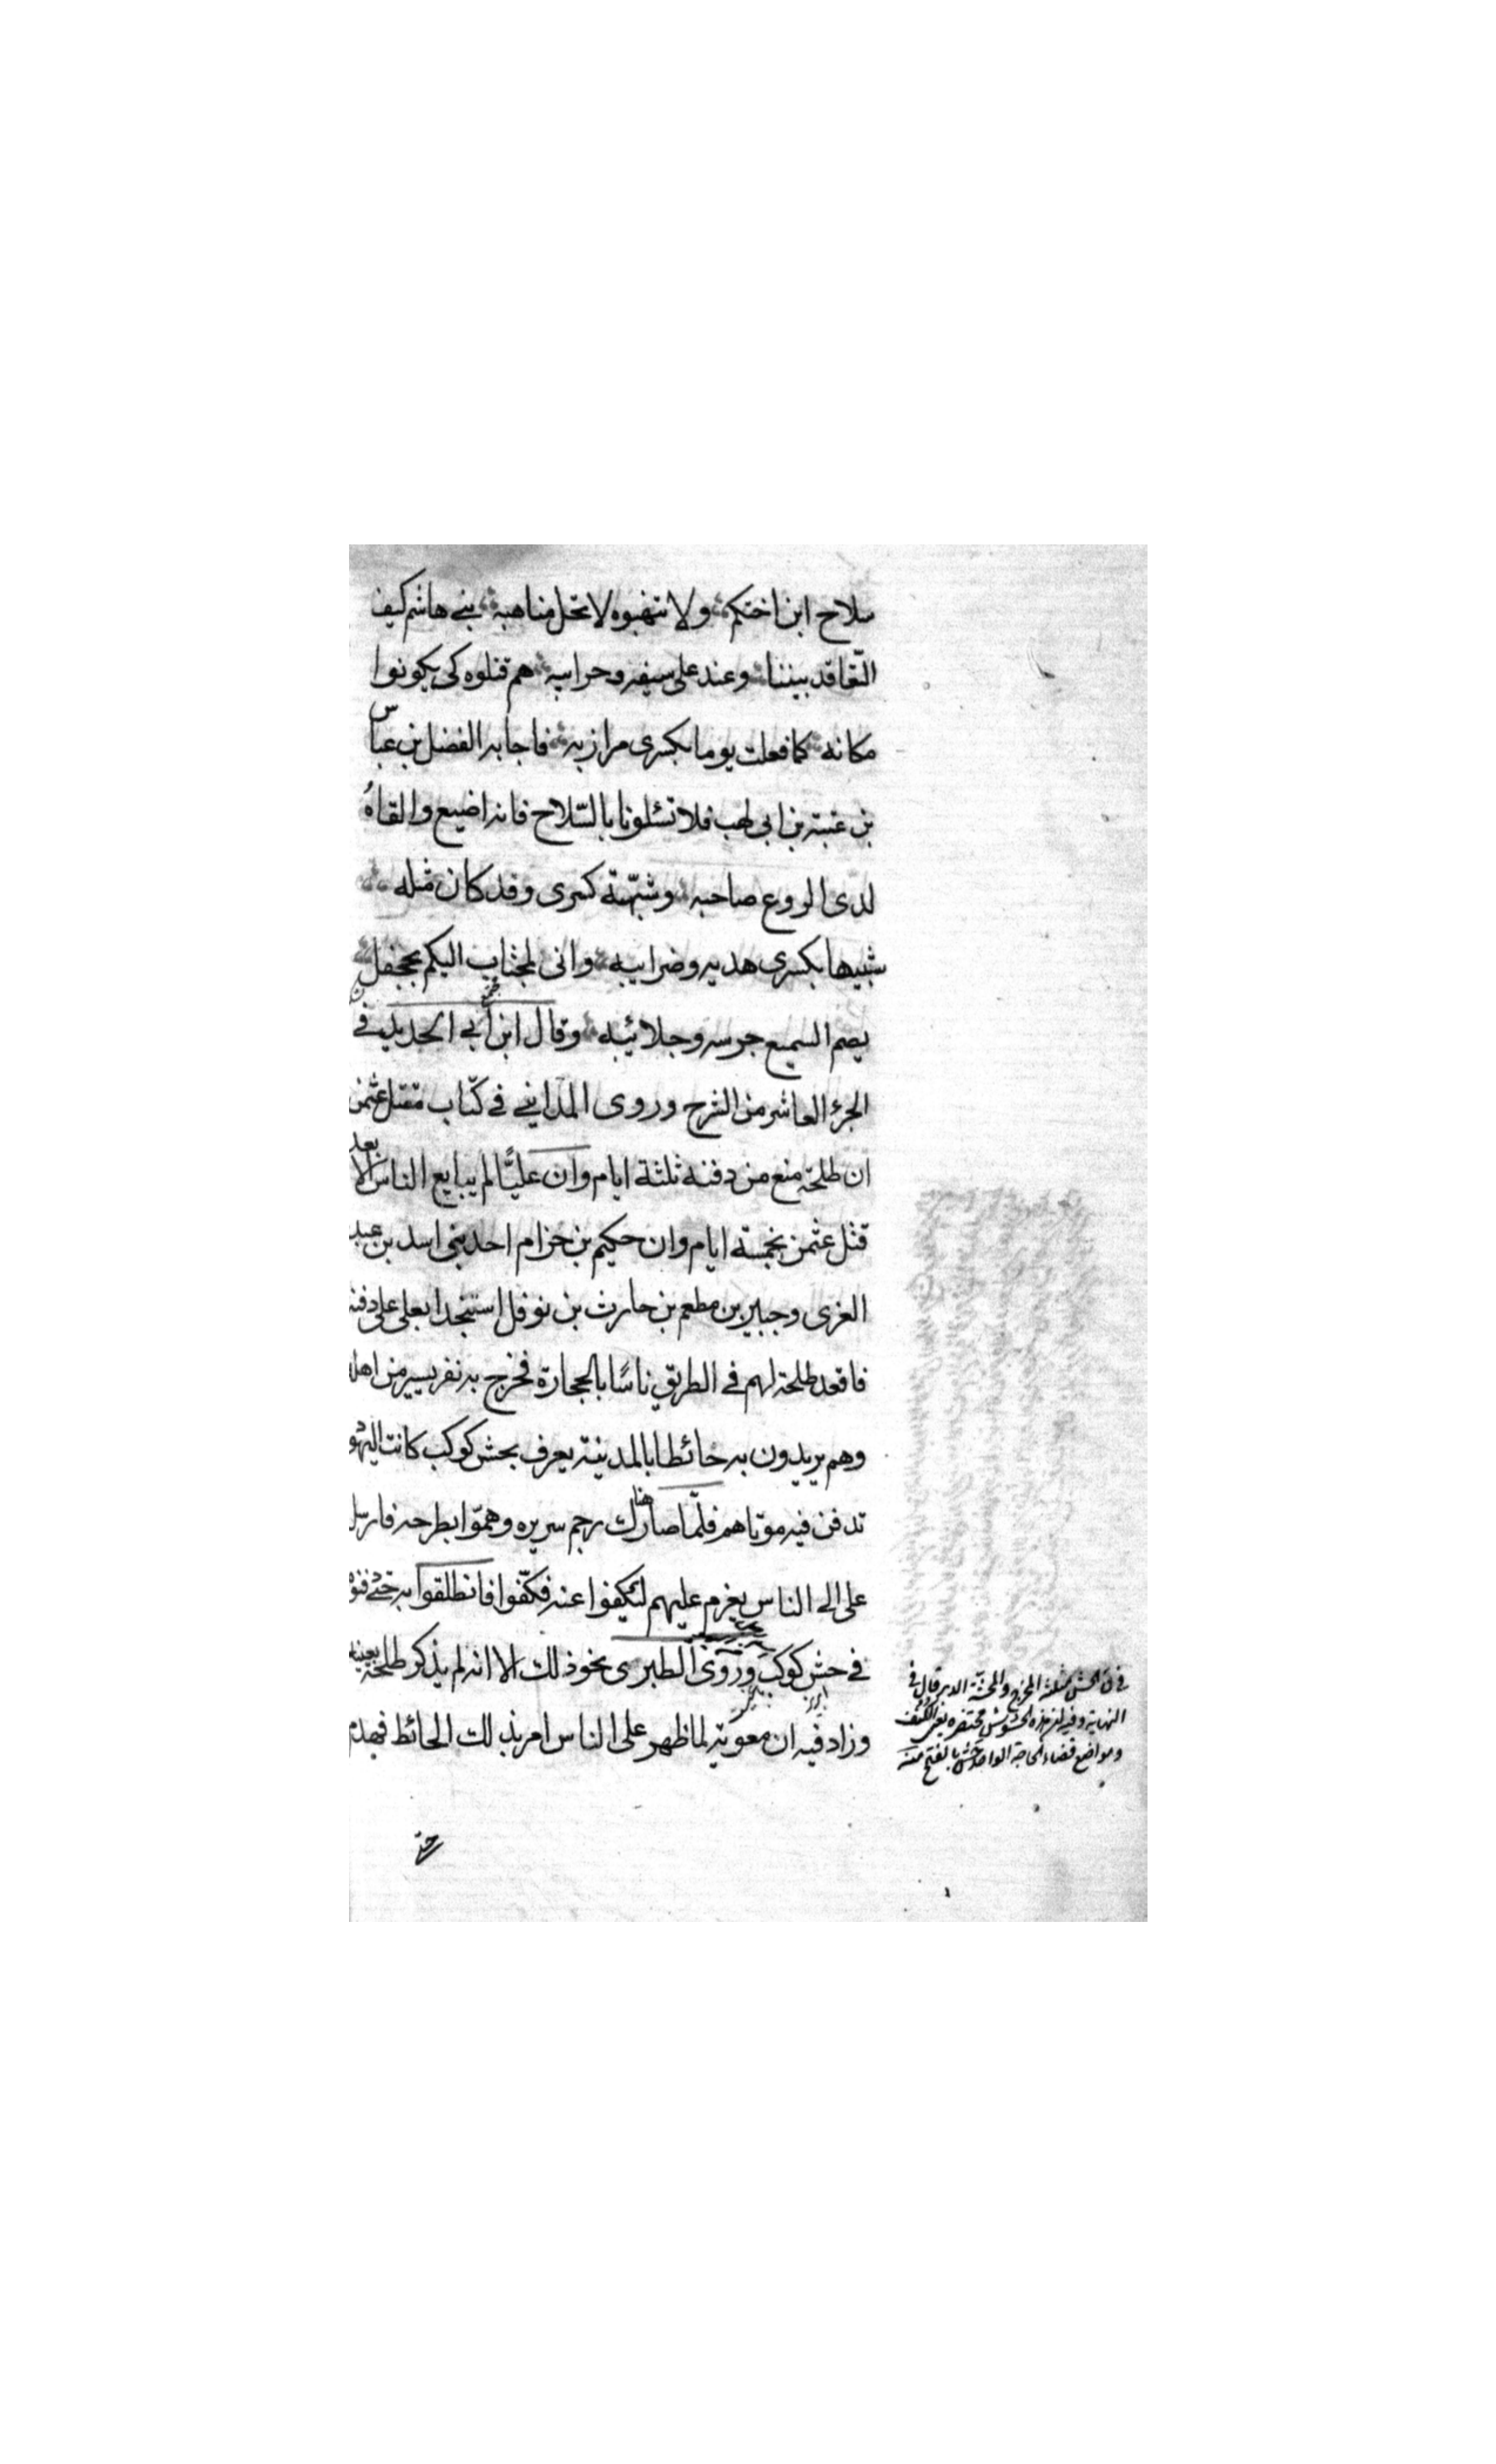 سلاح ابن اختكم ولا تنهبوه لا تحل مناهبه بنى هاشم كيف
التعاقد بيننا وعند على سيفه وحرايبه هم قتلوه كى يكونوا
مكانه كما فعلت يوما بكسرى مرازبه فاجابه الفضل بن عباس
بن عتبة بن ابى لهب فلا تسئلونا بالسّلاح فانه اضيع والقاهُ
لدى الروع صاحبه وشبّهته كسرى وقد كان مثله
شبيها بكسرى هديه وضرايبه وانى لمجتاب اليكم بجحفل
يصم السميع جرسه وجلائبه وقال ابن أبي الحديد في
الجزء العاشر من الشرح وروى المدايني في كتاب مقتل عثمن
ان طلحة منع من دفنه ثلثة ايام وان عليًّا لم يبايع الناس الا بعد
قتل عثمن بخمسة ايام وان حكيم بن حزام احد بنى اسد بن عبد
العزى وجبير بن مطعم بن حارث بن نوفل استنجدا بعلى على دفنه
فاقعد طلحة لهم في الطريق ناسًا بالحجارة فخرج به نفر يسير من اهله
وهم يريدون به حائطا بالمدينة يعرف بحش كوكب كانت اليهود
تدفن فيه موتاهم فلمّا صار هناك رجم سريره وهموّا بطرحه فارسل
على الى الناس يعزم عليهم ليكفوا عنه فكفّوا فانطلقوا به حتى دفنوه
في حش كوكب وروى الطبرى نحو ذلك الا انه لم يذكر طلحة بعينه
وزاد فيه ان معوية لما ظهر على الناس امر بذلك الحائط فهدم
في ق الحش مثلثة المخرج والمحشة الدبر قال في
النهاية وفيه ان هذه الحشوش محتضرة يعنى الكنف
ومواضع قضاء الحاجة الواحد حش بالفتح منه